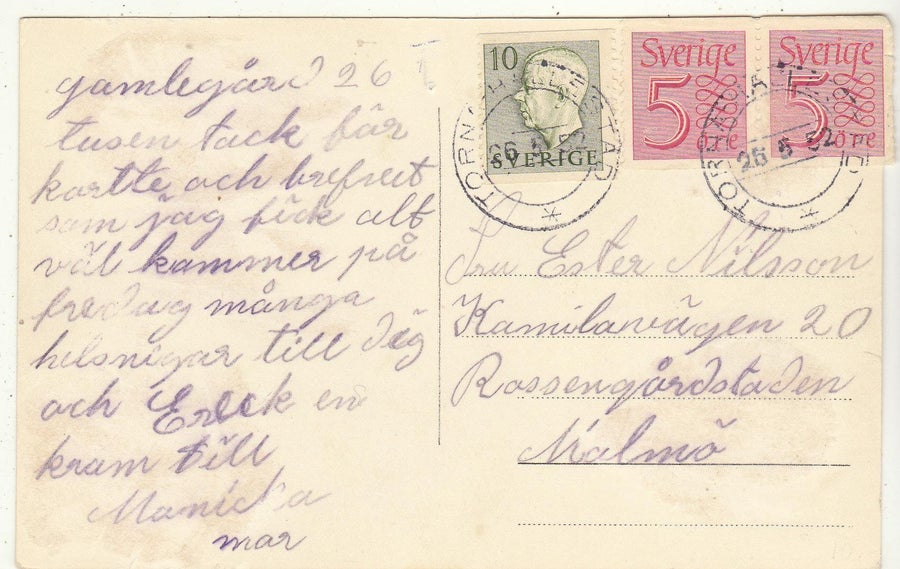 gamlegård 26
tusen tack får
kortte och brefvet
som jag fick alt
väl kammer på
fredag många
helsnigar till dig
och Erick en
kram till
Manicka
mor
10
SVERIGE
Sverige
5
öre
Sverige
5
öre
26 5 52
Fru Ester Nilsson
Kamilavägen 20
Rossengårdstaden
Malmö